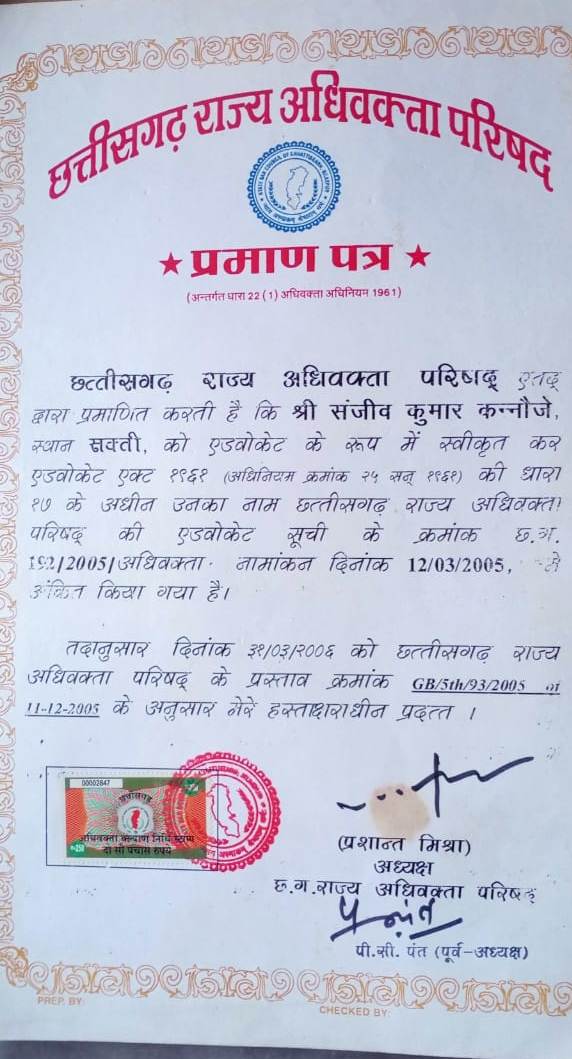 छत्तीसगढ़ राज्य अधिवक्ता परिषद
STATE BAR COUNCIL OF CHHATTISGARH, BILASPUR
★ प्रमाण पत्र ★
(अन्तर्गत धारा 22 (1) अधिवक्ता अधिनियम 1961)
छत्तीसगढ़ राज्य अधिवक्ता परिषद् एतद्
द्वारा प्रमाणित करती है कि श्री संजीव कुमार कन्नौजे,
स्थान सक्ती, को एडवोकेट के रूप में स्वीकृत कर
एडवोकेट एक्ट १९६१ (अधिनियम क्रमांक २५ सन् १९६१) की धारा
१७ के अधीन उनका नाम छत्तीसगढ़ राज्य अधिवक्ता
परिषद् की एडवोकेट सूची के क्रमांक छ.ग.
192/2005/अधिवक्ता. नामांकन दिनांक 12/03/2005, से
अंकित किया गया है।
तदानुसार दिनांक ३१/०३/२००६ को छत्तीसगढ़ राज्य
अधिवक्ता परिषद् के प्रस्ताव क्रमांक GB/5th/93/2005 of
11-12-2005 के अनुसार मेरे हस्ताक्षराधीन प्रदत्त ।
00002847
छत्तीसगढ़
अधिवक्ता कल्याण निधि स्टाम्प
दो सौ पचास रुपये
₨250
(प्रशान्त मिश्रा)
अध्यक्ष
छ.ग.राज्य अधिवक्ता परिषद्
पी.सी. पंत (पूर्व-अध्यक्ष)
PREP. BY:
CHECKED BY: